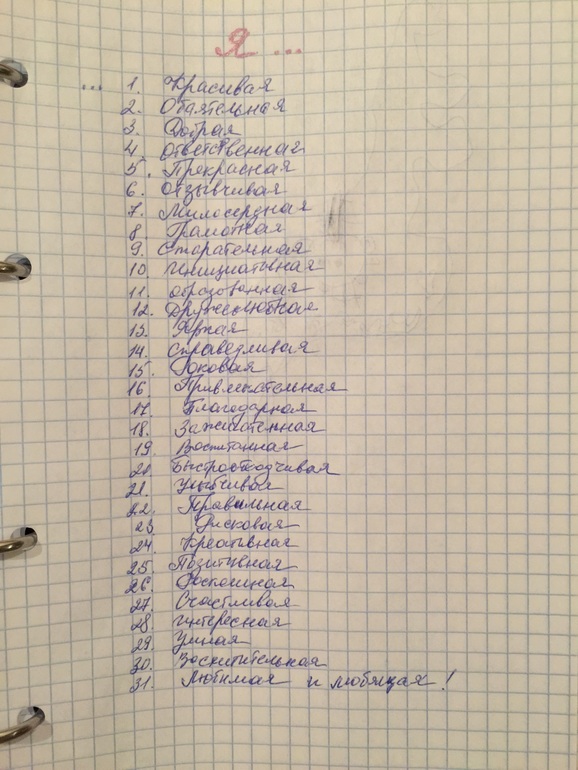 Я ...
... 1. Красивая
2. Обаятельная
3. Добрая
4. Ответственная
5. Прекрасная
6. Отзывчивая
7. Милосердная
8. Грамотная
9. Старательная
10. Инициативная
11. Образованная
12. Дружелюбная
13. Яркая
14. Справедливая
15. Роковая
16. Привлекательная
17. Благодарная
18. Зажигательная
19. Воспитанная
20. Быстроотходчивая
21. Улыбчивая
22. Правильная
23. Рисковая
24. Креативная
25. Позитивная
26. Роскошная
27. Счастливая
28. Интересная
29. Умная
30. Восхитительная
31. Любимая и любящая!